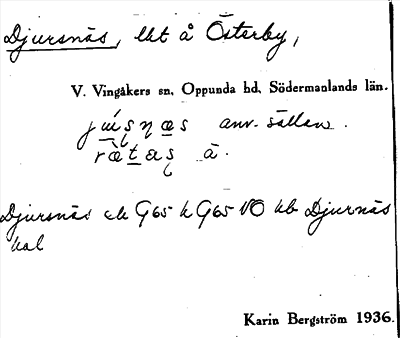 Djursnäs, lht å Österby,
V. Vingåkers sn, Oppunda hd, Södermanlands län.
anv. sällan.
Djursnäs ek G65 k G65 VO hb Djurnäs
kal
Karin Bergström 1936.